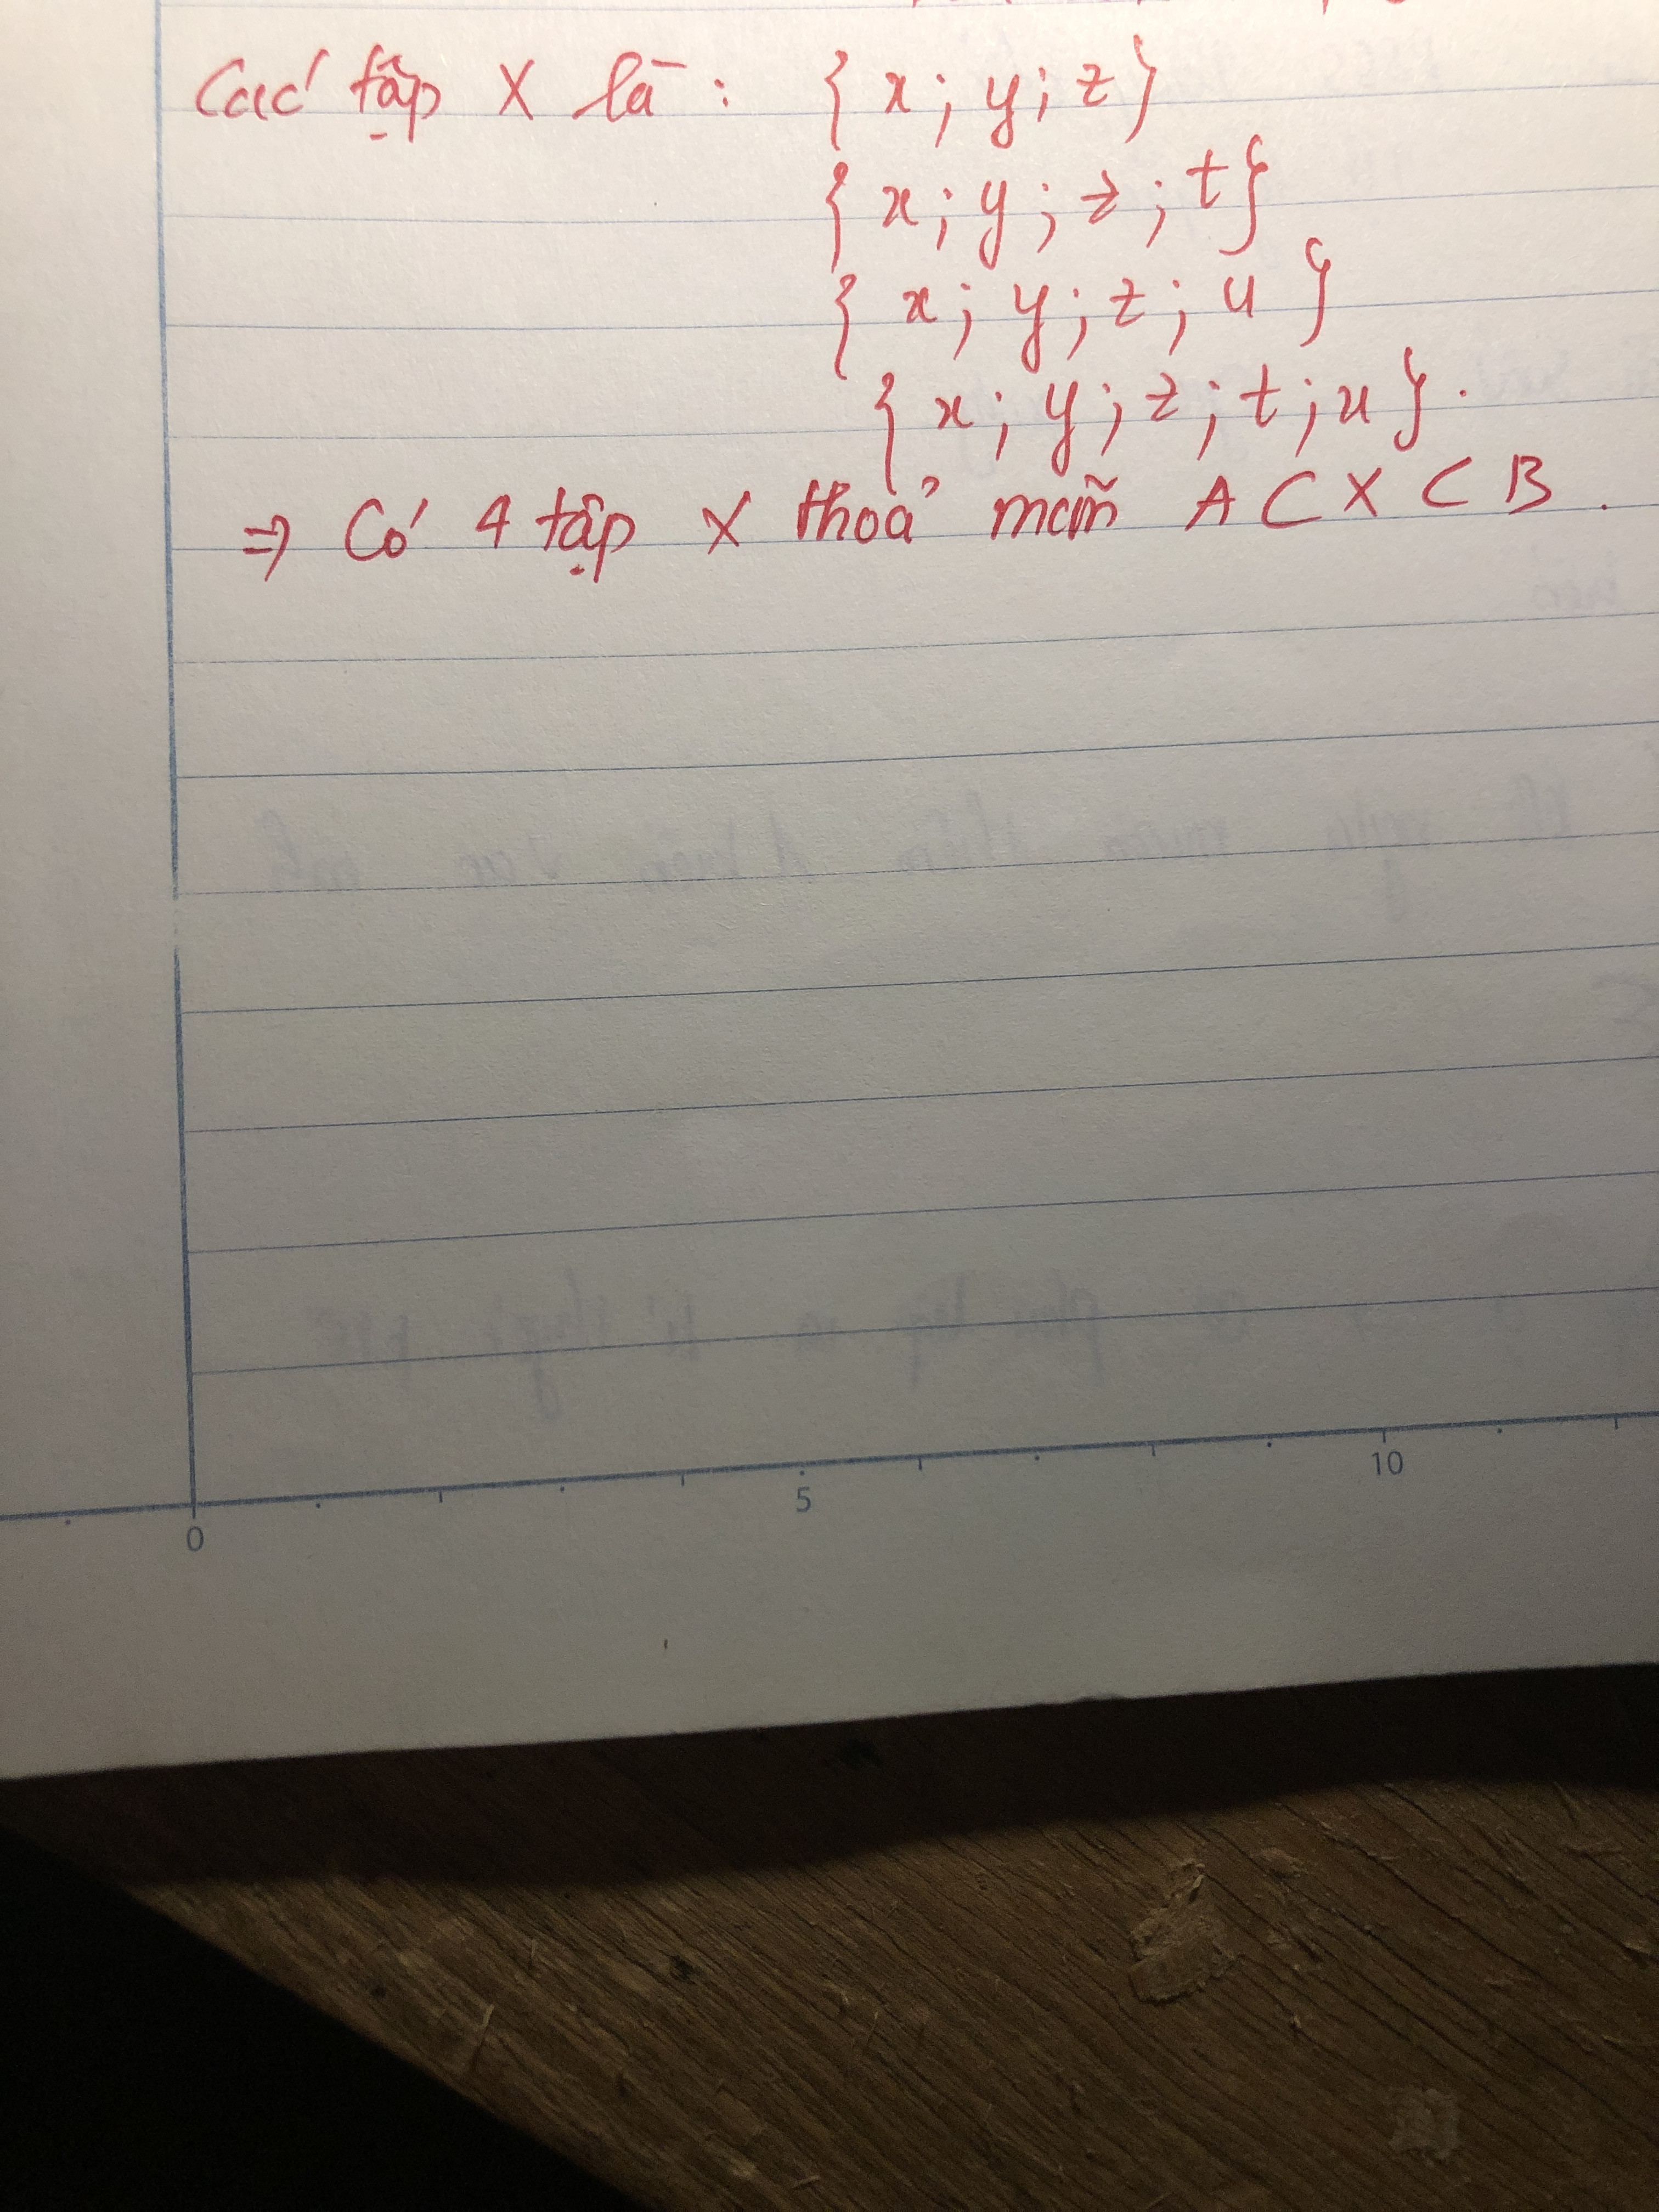 Các tập X là: { x; y; z}
{ x; y; z; t}
{ x; y; z; u }
{ x; y; z; t; u}.
⇒ Có 4 tập X thoả mãn A ⊂ X ⊂ B.
0 5 10